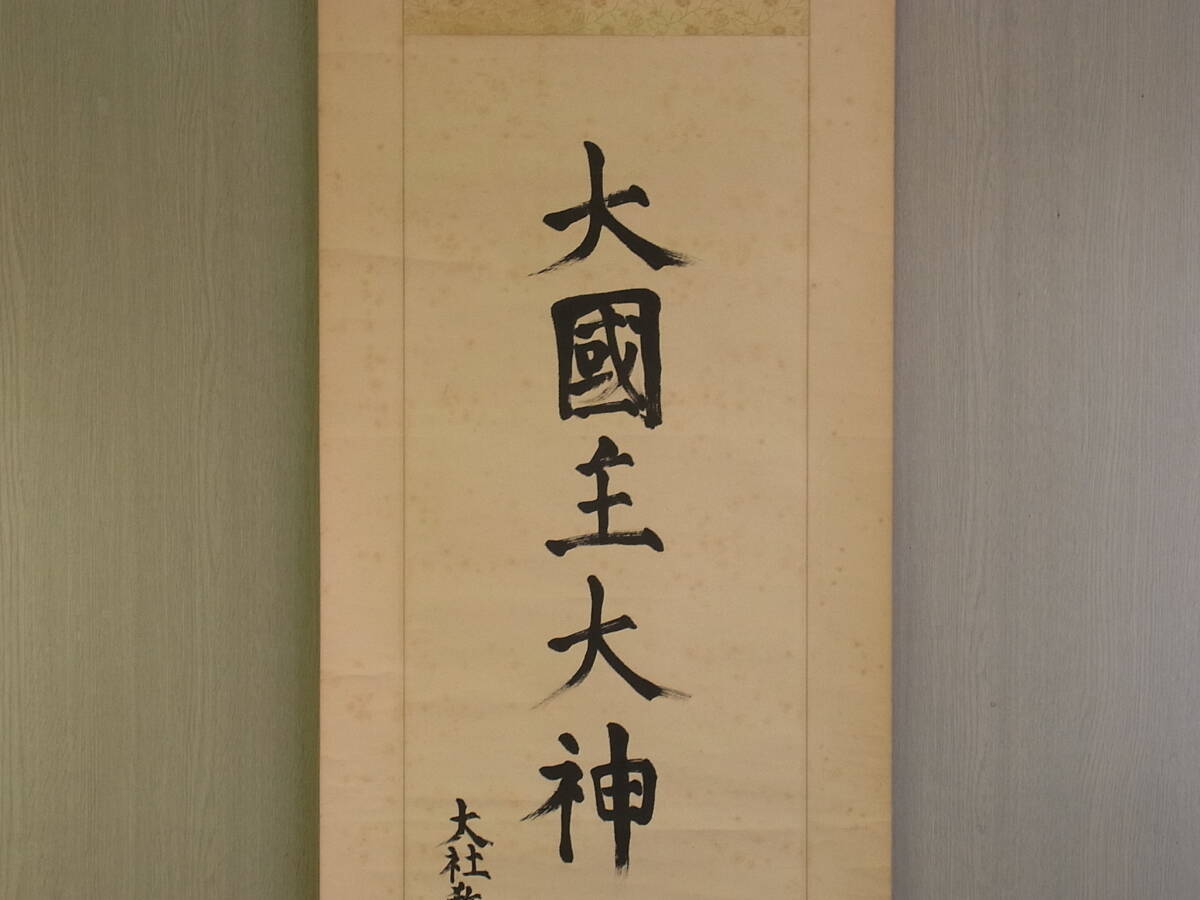 大國主大神
大社教